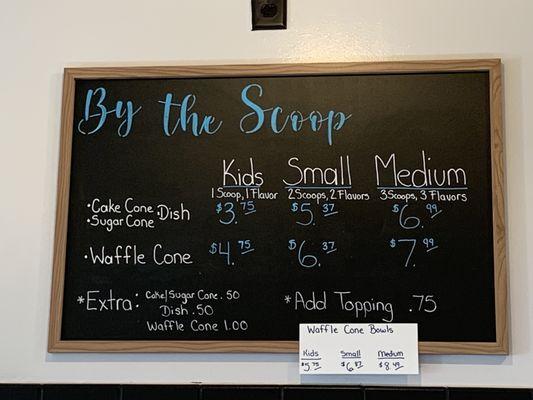 By the Scoop
Kids Small Medium
1 Scoop, 1 Flavor 2 Scoops, 2 Flavors 3 Scoops, 3 Flavors
•Cake Cone •Dish $3.75 $5.37 $6.99
•Sugar Cone
•Waffle Cone $4.75 $6.37 $7.99
*Extra: Cake/Sugar Cone .50 *Add Topping .75
Dish .50
Waffle Cone 1.00
Waffle Cone Bowls
Kids Small Medium
$5.75 $6.87 $8.49